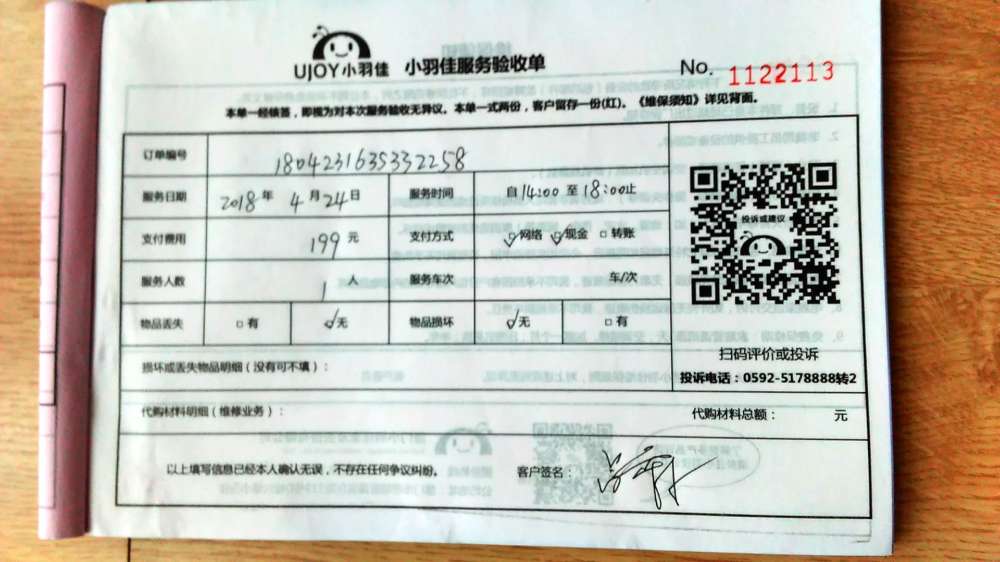 UJOY小羽佳 小羽佳服务验收单 No. 1122113
本单一经核签，即视为对本次服务验收无异议。本单一式两份，客户留存一份(红)。《维保须知》详见背面。
订单编号 1804231635332258
服务日期 2018年 4月24日 服务时间 自14:00至18:00止
支付费用 199元 支付方式 ☑网络 ☑现金 □转账
服务人数 1人 服务车次 车/次
物品丢失 □有 ☑无 物品损坏 ☑无 □有
投诉或建议
扫码评价或投诉
投诉电话：0592-5178888转2
损坏或丢失物品明细（没有可不填）：
代购材料明细（维修业务）： 代购材料总额： 元
以上填写信息已经本人确认无误，不存在任何争议纠纷。 客户签名：